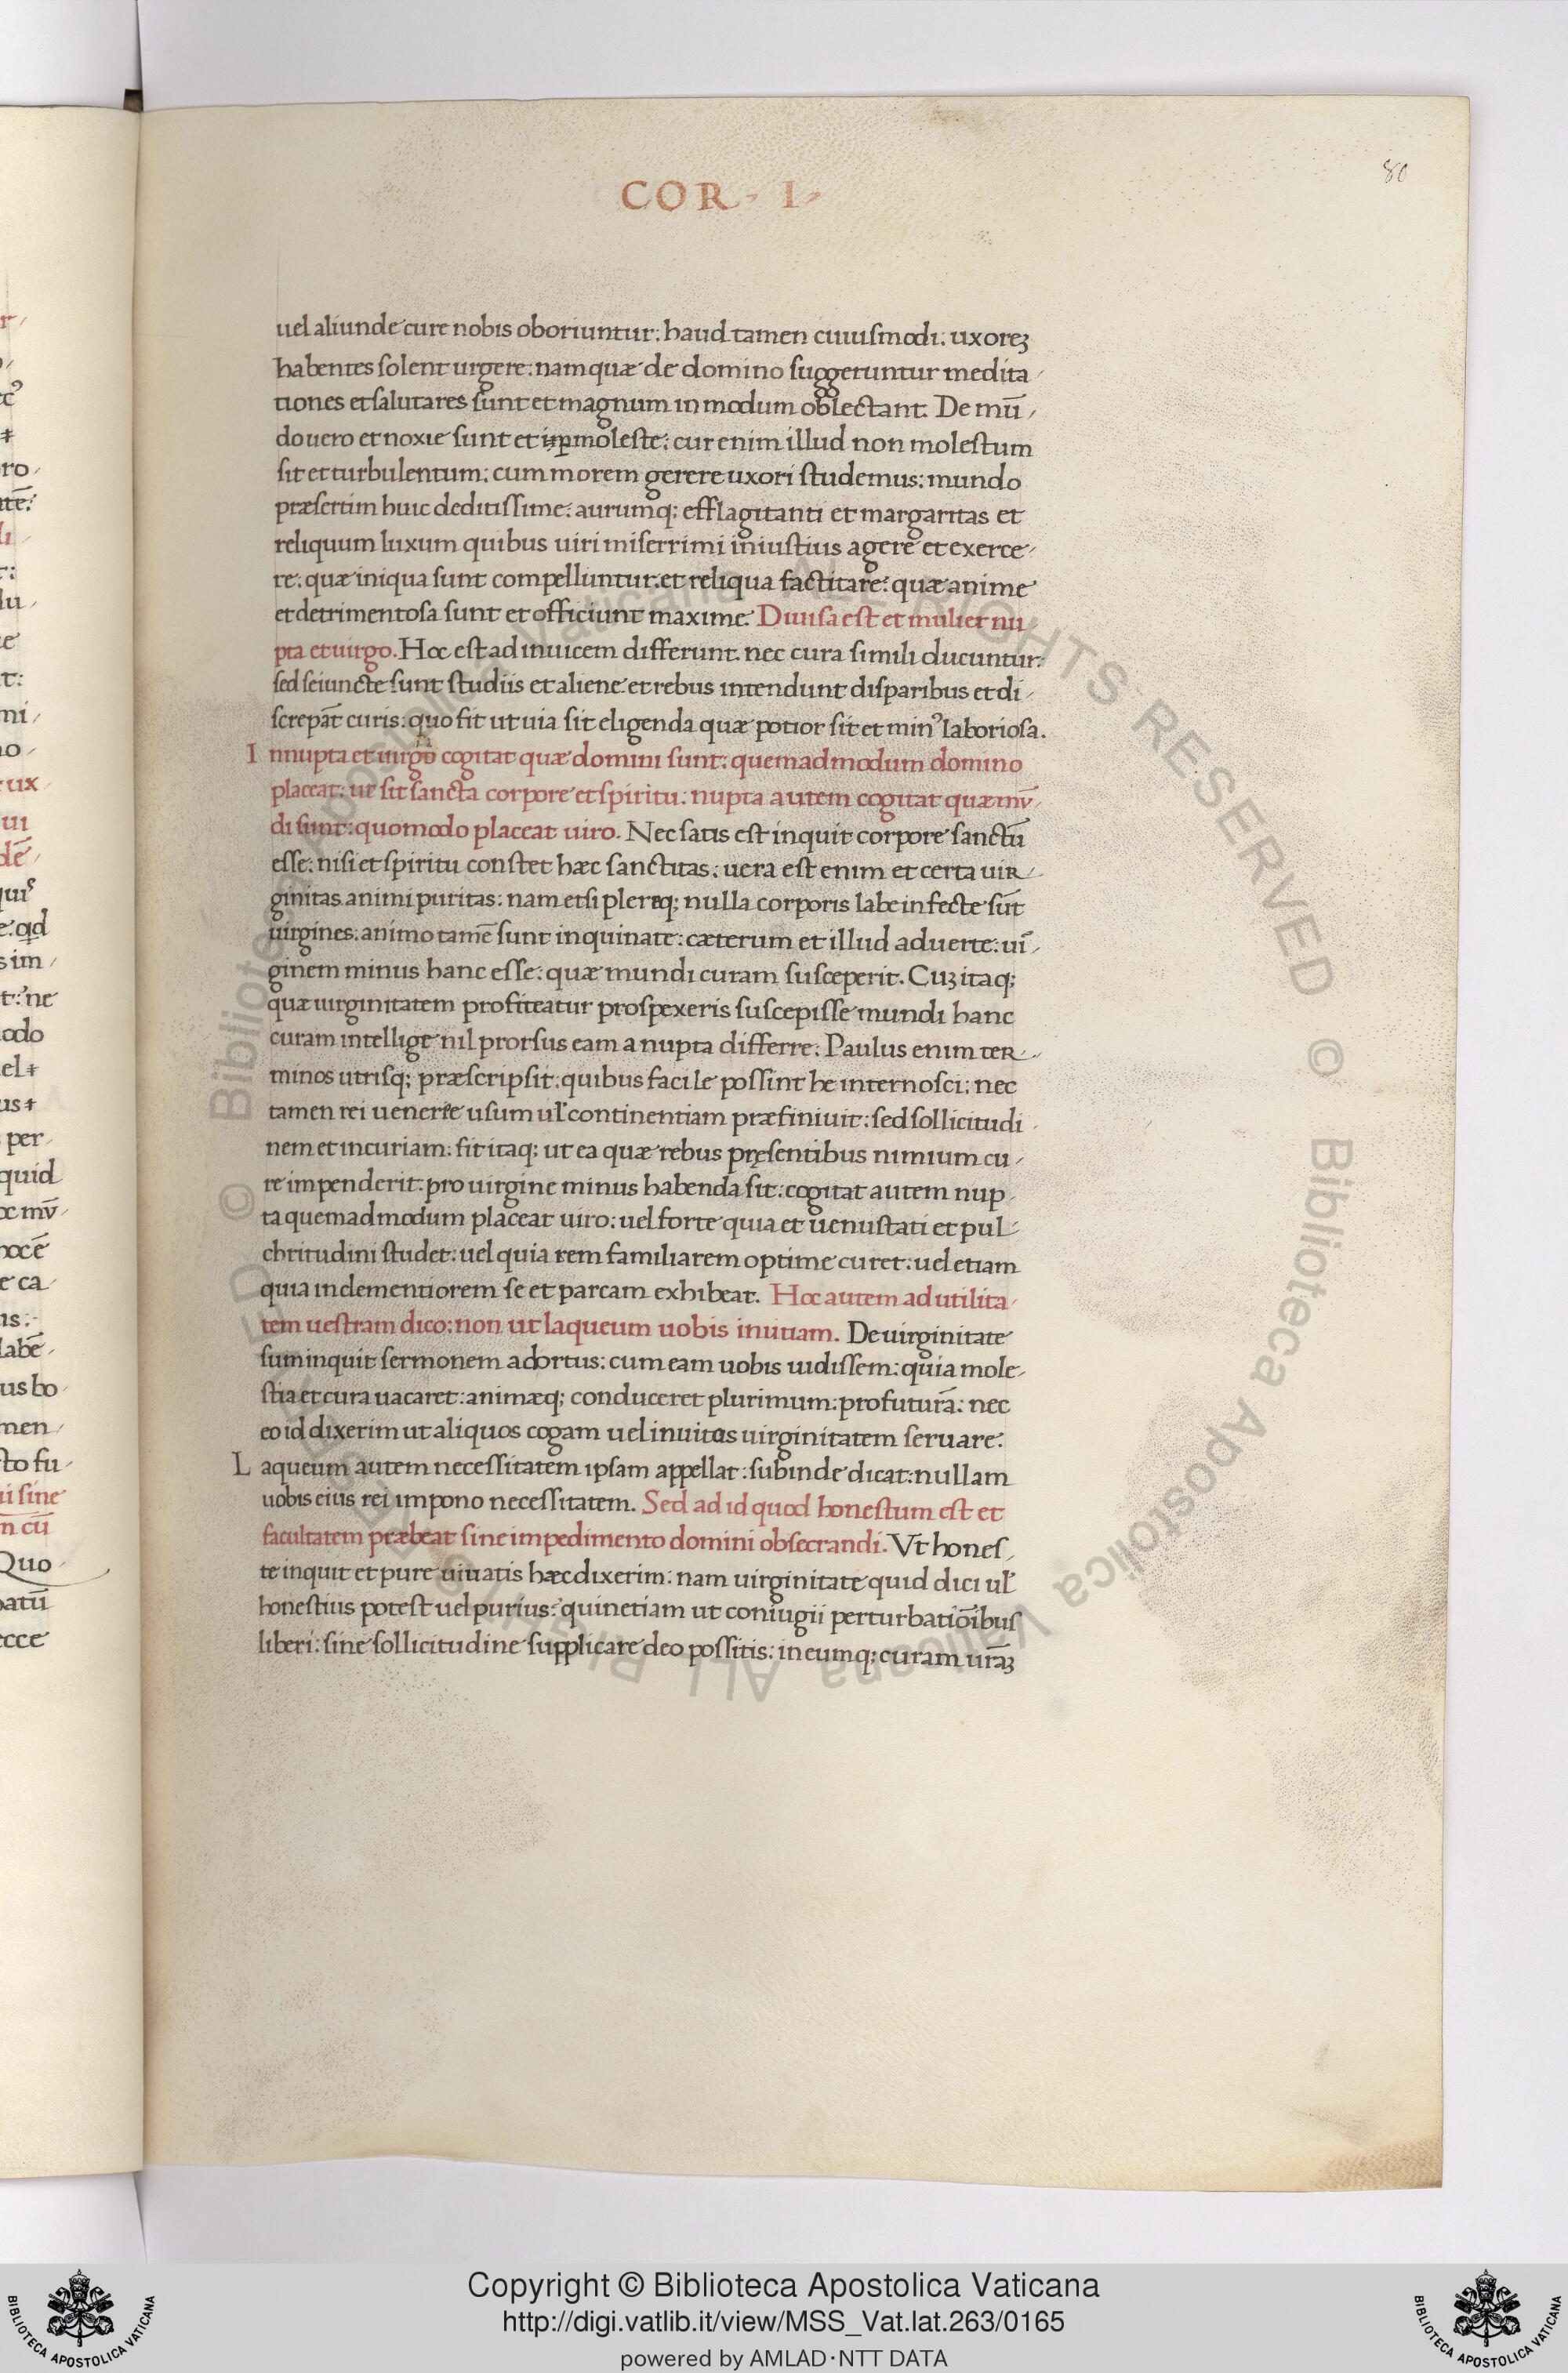 COR. I.
80
uel aliunde cure nobis oboriuntur: haud tamen cuiusmodi: uxoreʒ
habentes solent urgere: nam quæ de domino suggeruntur medita
tiones et salutares sunt et magnum in modum oblectant. De mū
do uero et noxie sunt et moleste: cur enim illud non molestum
sit et turbulentum: cum morem gerere uxori studemus: mundo
præsertim huic deditissime: aurumq; efflagitanti et margaritas et
reliquum luxum quibus uiri miserrimi iniustius agere et exerce
re: quæ iniqua sunt compelluntur: et reliqua factitare: quæ anime
et detrimentosa sunt et officiunt maxime. Diuisa est et mulier nu
pta et uirgo. Hoc est ad inuicem differunt. nec cura simili ducuntur:
sed seiuncte sunt studiis et aliene: et rebus intendunt disparibus et di
screpāt curis: quo fit ut uia sit eligenda quæ potior sit et minꝰ laboriosa.
Innupta et uirgo cogitat quæ domini sunt: quemadmodum domino
placeat: ut sit sancta corpore et spiritu: nupta autem cogitat quæ mū
di sunt: quomodo placeat uiro. Nec satis est inquit corpore sanctū
esse: nisi et spiritu constet hæc sanctitas: uera est enim et certa uir
ginitas animi puritas: nam etsi pleræq; nulla corporis labe infecte sūt
uirgines: animo tamē sunt inquinate: cæterum et illud aduerte: uī
ginem minus hanc esse: quæ mundi curam susceperit. Cuʒ itaq;
quæ uirginitatem profiteatur prospexeris suscepisse mundi hanc
curam intellige nil prorsus eam a nupta differre: Paulus enim ter
minos utrisq; præscripsit: quibus facile possint he internosci: nec
tamen rei uenerie usum ul̄ continentiam præfiniuit: sed sollicitudi
nem et incuriam: fit itaq; ut ea quæ rebus pręsentibus nimium cu
re impenderit: pro uirgine minus habenda sit: cogitat autem nup
ta quemadmodum placeat uiro: uel forte quia et uenustati et pul
chritudini studet: uel quia rem familiarem optime curet: uel etiam
quia inclementiorem se et parcam exhibeat. Hoc autem ad utilita
tem uestram dico: non ut laqueum uobis iniitiam. De uirginitate
sum inquit sermonem adortus: cum eam uobis uidissem: quia mole
stia et cura uacaret: animæq; conduceret plurimum: profuturā: nec
eo id dixerim ut aliquos cogam uel inuitos uirginitatem seruare:
Laqueum autem necessitatem ipsam appellat: subinde dicat: nullam
uobis eius rei impono necessitatem. Sed ad id quod honestum est et
facultatem præbeat sine impedimento domini obsecrandi. Vt hones
te inquit et pure uiuatis hæc dixerim: nam uirginitate quid dici ul̄
honestius potest uel purius: quinetiam ut coniugii perturbatiōibus
liberi: sine sollicitudine supplicare deo possitis: in eumq; curam urāʒ
© Biblioteca Apostolica Vaticana ALL RIGHTS RESERVED © Biblioteca Apostolica Vaticana ALL RIGHTS RESERVED
Copyright © Biblioteca Apostolica Vaticana
http://digi.vatlib.it/view/MSS_Vat.lat.263/0165
powered by AMLAD·NTT DATA
BIBLIOTECA APOSTOLICA VATICANA
BIBLIOTECA APOSTOLICA VATICANA